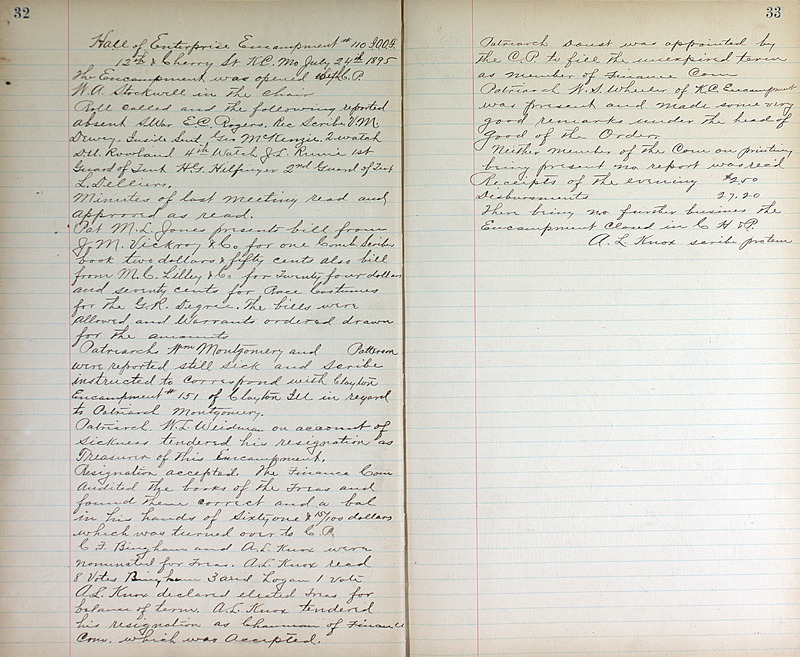 32
Hall of Enterprise Encampment # 110 I.O.O.F.
12th & Cherry St K.C. Mo July 24th 1895
The Encampment was opened by C.P.
W.A. Stockwell in the chair
Roll called and the following reported
absent S. War E.C. Rogers. Rec Scribe V.M.
Dewey, Inside Sent Geo McKenzie. 2 watch
D.W. Rowland 4th Watch J.L. 1st
Guard of Tent H.G. Helfinger 2nd Guard of Tent
L. Delleurs.
Minutes of last meeting read and
approved as read.
Pat M.L. Jones presents bill from
J.M. Vickroy & Co for one Comb Scribes
book two dollars & fifty cents also bill
from M.C. Lilley & Co for Twenty four dollars
and seventy cents for Race Costumes
for the G.R. Degree. The bills were
allowed and Warrants ordered drawn
for the amounts
Patriarchs Wm Montgomery and Patterson
were reported still sick and Scribe
instructed to correspond with Clayton
Encampment # 151 of Clayton Ill in regard
to Patriarch Montgomery.
Patriarch W.L. Weidman on account of
sickness tendered his resignation as
Treasurer of this Encampment.
Resignation accepted. The Finance Com
audited the books of the Treas and
found them correct and a bal
in his hands of Sixty one & 15/100 dollars
which was turned over to C.P.
C.F. Bingham and A.L. Knox were
nominated for Treas. A.L. Knox read
8 Votes Bingham 3 and Logan 1 vote
A.L. Knox declared elected Treas for
balance of term. A.L. Knox tendered
his resignation as Chairman of Finance
Com. which was Accepted.
33
Patriarch Doust was appointed by
the C.P. to fill the unexpired term
as member of Finance Com
Patriarch W.S. Wheeler of K.C. Encampment
was present and made some very
good remarks under the head of
Good of the Order,
Neither member of the Com on printing
being present no report was read
Receipts of the evening $2.50
Disbursments 27.20
There being no further busines the
Encampment closed in C H & P.
A.L. Knox scribe protem